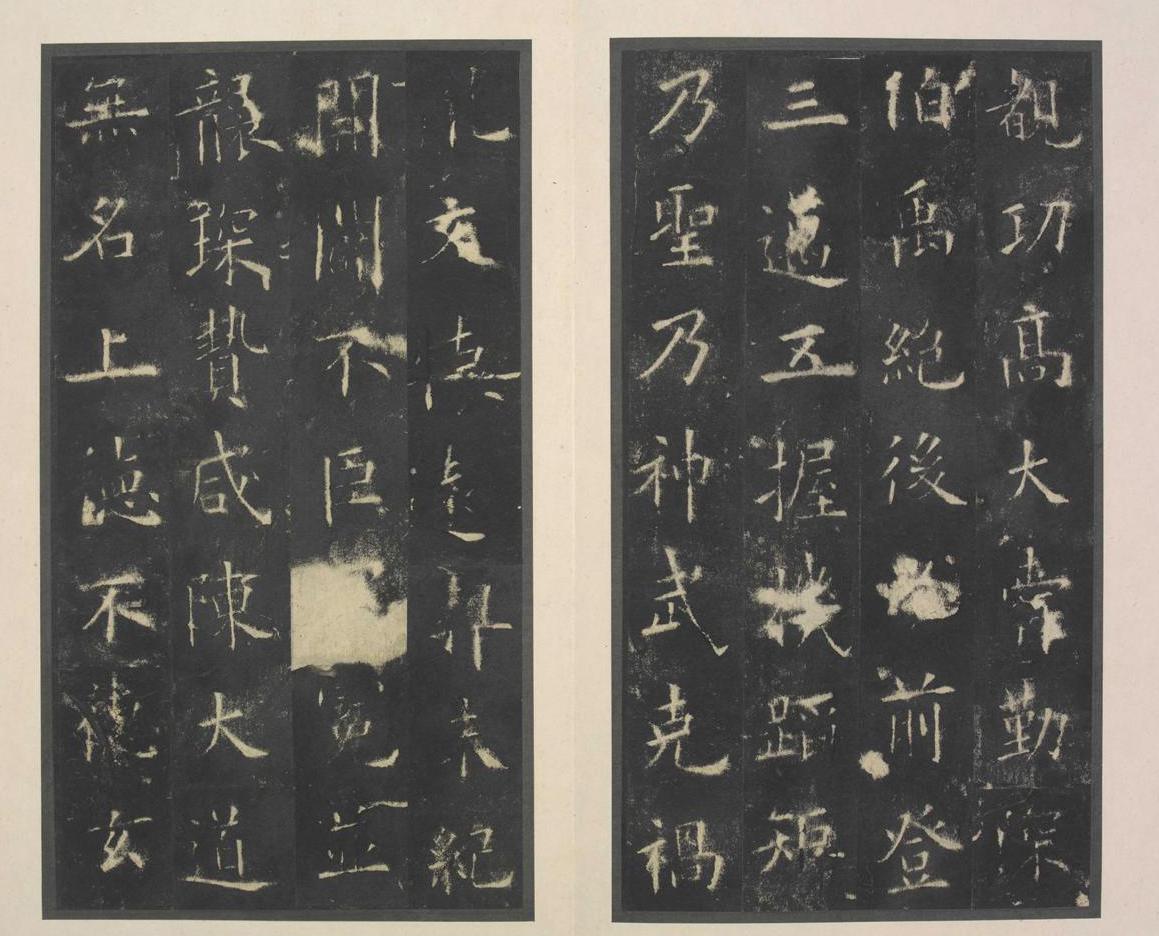 覩功高大勤深
伯禹絕後光前登
三邁五握機蹈矩
乃聖乃神武克禍
亂文懷遠未紀
開闢不臣冕並
襲琛贄咸陳大道
無名上德不德玄